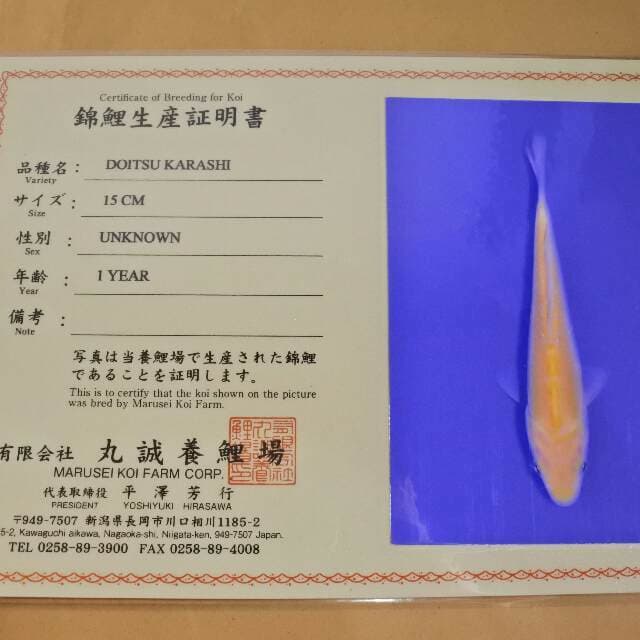 Certificate of Breeding for Koi
錦鯉生産証明書
品種名： DOITSU KARASHI
Variety
サイズ： 15 CM
Size
性別： UNKNOWN
Sex
年齢： 1 YEAR
Year
備考：
Note
写真は当養鯉場で生産された錦鯉
であることを証明します。
This is to certify that the koi shown on the picture
was bred by Marusei Koi Farm.
有限会社 丸誠養鯉場
MARUSEI KOI FARM CORP.
代表取締役 平澤芳行
PRESIDENT YOSHIYUKI HIRASAWA
〒949-7507 新潟県長岡市川口相川1185-2
5-2, Kawaguchi aikawa, Nagaoka-shi, Niigata-ken, 949-7507 Japan.
TEL 0258-89-3900 FAX 0258-89-4008